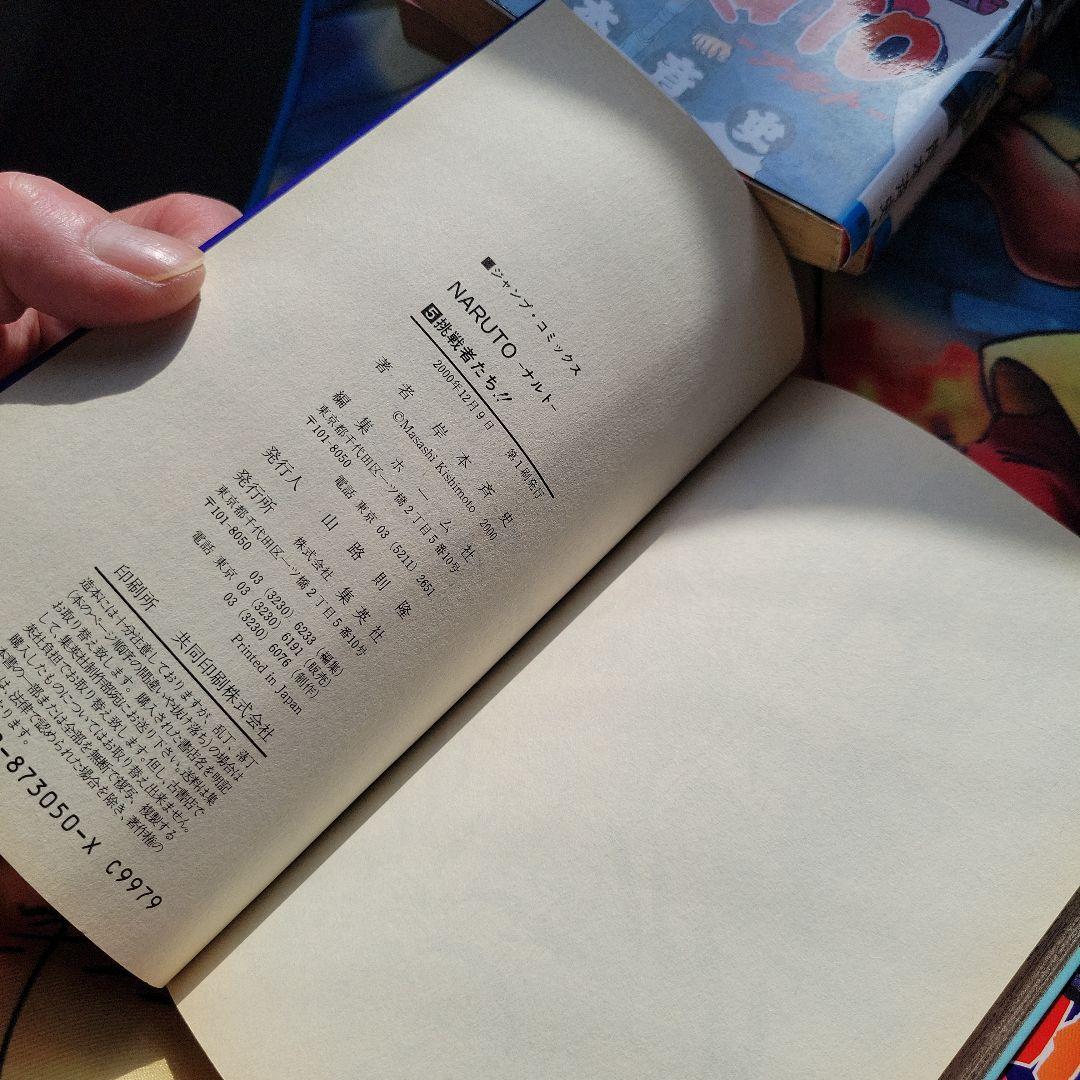 ■ジャンプ・コミックス
NARUTO -ナルト-
5挑戦者たち!!
2000年12月9日 第1刷発行
著者 岸本斉史
©Masashi Kishimoto 2000
編集 ホーム社
東京都千代田区一ツ橋2丁目5番10号
〒101-8050 電話 東京 03 (5211) 2651
発行人 山路則隆
発行所 株式会社 集英社
東京都千代田区一ツ橋2丁目5番10号
〒101-8050
03 (3230) 6233 (編集)
電話 東京 03 (3230) 6191 (販売)
03 (3230) 6076 (制作)
Printed in Japan
印刷所 共同印刷株式会社
造本には十分注意しておりますが、乱丁、落丁
(本のページ順序の間違いや抜け落ち)の場合は
お取り替え致します。購入された書店名を明記
して、集英社制作部宛にお送り下さい。送料は集
英社負担でお取り替え致します。但し、古書店で
購入したものについてはお取り替え出来ません。
本書の一部または全部を無断で複写、複製する
は、法律で認められた場合を除き、著作権の
なります。
-873050-X C9979
本斉史